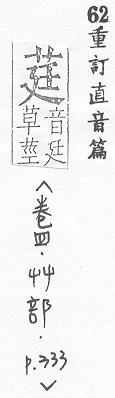 62重訂直音篇
莛
音廷
草莖
<卷四·艸部·p.333>